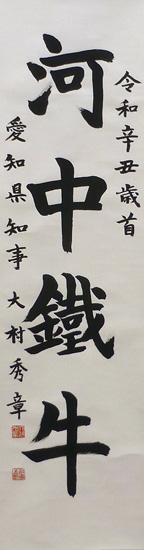 令和辛丑歳首
河中鐵牛
愛知県知事 大村秀章